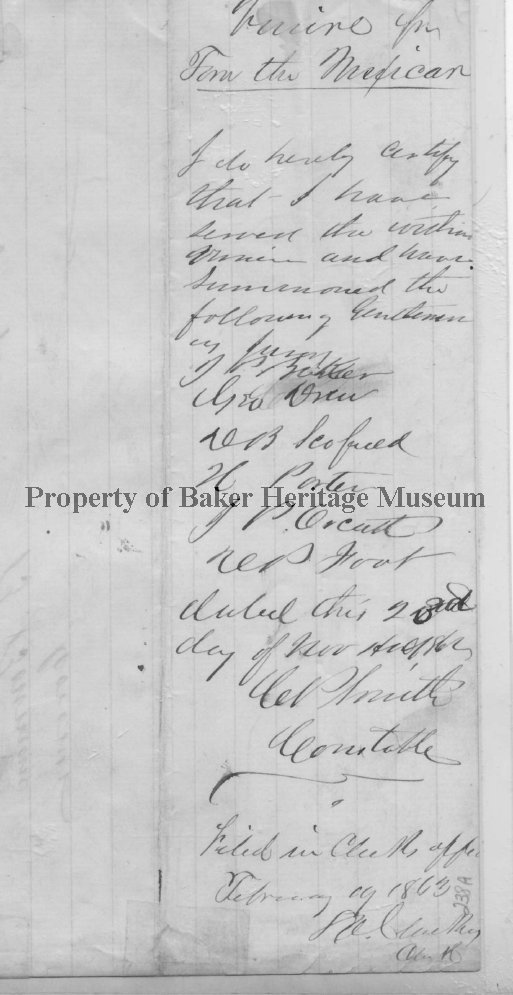 Venire for
Tom the Mexican
I do hereby certify
that I have
served the within
venire and have
Summoned the
following Gentlemen
as jurors
Geo Drew
D B Scofield
H Porter
Property of Baker Heritage Museum
P. Orcutt
Foot
dated this 22nd
day of Nov
C P Smith
Constable
Filed in Clerks office
February 19 1863
Clerk
238A